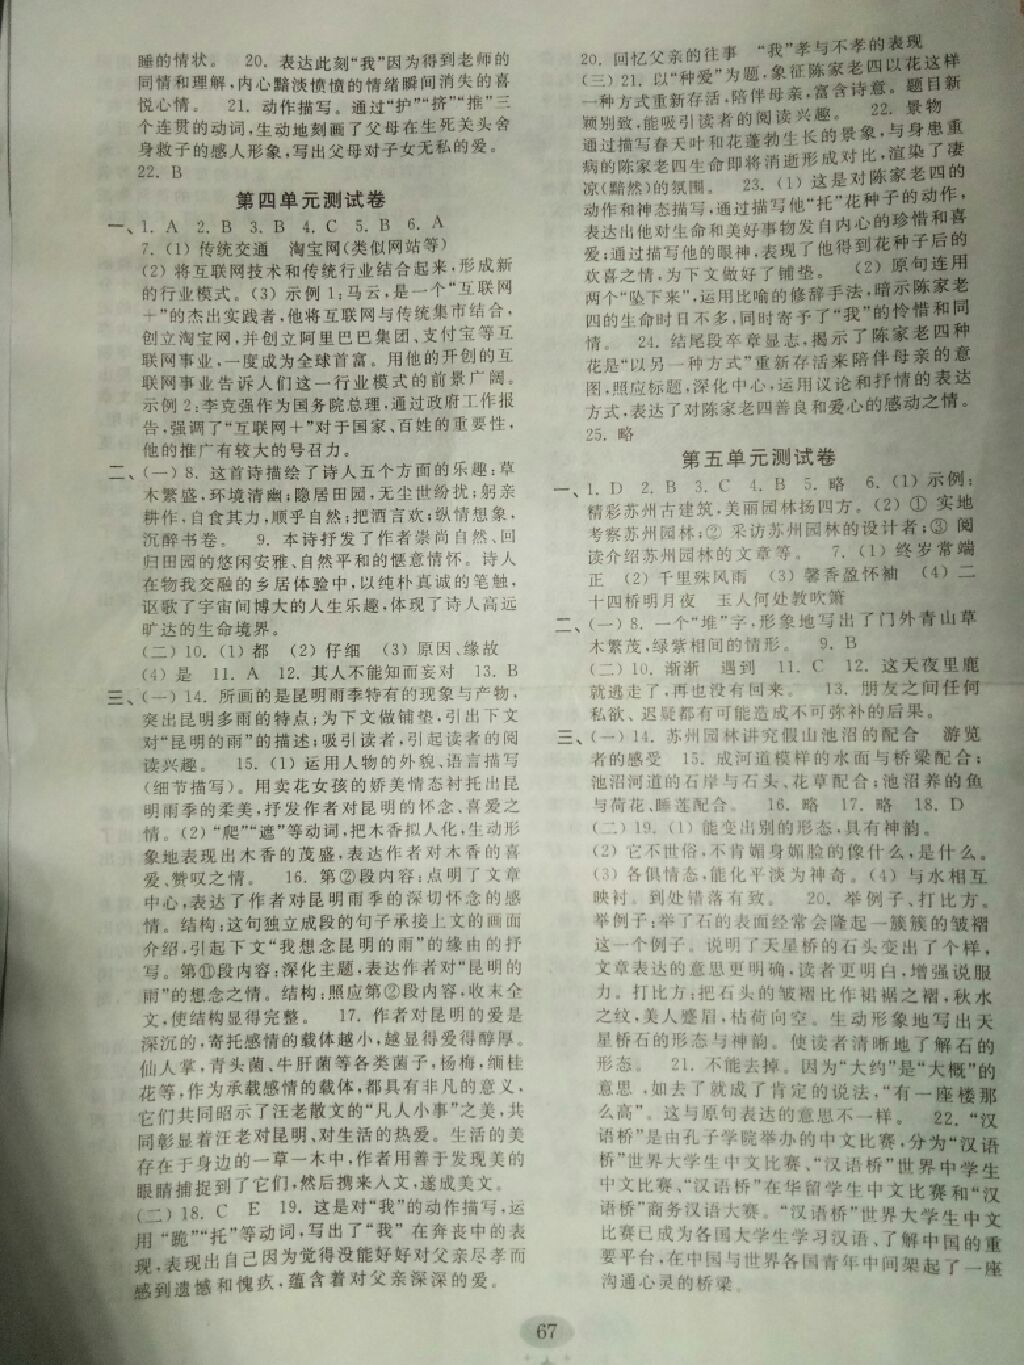 睡的情状。　20. 表达此刻“我”因为得到老师的
同情和理解,内心黯淡愤愤的情绪瞬间消失的喜
悦心情。　21. 动作描写。通过“护”“挤”“推”三
个连贯的动词,生动地刻画了父母在生死关头舍
身救子的感人形象,写出父母对子女无私的爱。
22. B
第四单元测试卷
一、1. A　2. B　3. B　4. C　5. B　6. A
7. (1) 传统交通　淘宝网(类似网站等)
(2) 将互联网技术和传统行业结合起来,形成新
的行业模式。(3) 示例1:马云,是一个“互联网
＋”的杰出实践者,他将互联网与传统集市结合,
创立淘宝网,并创立阿里巴巴集团、支付宝等互
联网事业,一度成为全球首富。用他的开创的互
联网事业告诉人们这一行业模式的前景广阔。
示例2:李克强作为国务院总理,通过政府工作报
告,强调了“互联网＋”对于国家、百姓的重要性,
他的推广有较大的号召力。
二、(一) 8. 这首诗描绘了诗人五个方面的乐趣:草
木繁盛,环境清幽;隐居田园,无尘世纷扰;躬亲
耕作,自食其力,顺乎自然;把酒言欢;纵情想象,
沉醉书卷。　9. 本诗抒发了作者崇尚自然、回
归田园的悠闲安雅、自然平和的惬意情怀。诗人
在物我交融的乡居体验中,以纯朴真诚的笔触,
讴歌了宇宙间博大的人生乐趣,体现了诗人高远
旷达的生命境界。
(二) 10. (1) 都　(2) 仔细　(3) 原因、缘故
(4) 是　11. A　12. 其人不能知而妄对　13. B
三、(一) 14. 所画的是昆明雨季特有的现象与产物,
突出昆明多雨的特点;为下文做铺垫,引出下文
对“昆明的雨”的描述;吸引读者,引起读者的阅
读兴趣。　15. (1) 运用人物的外貌、语言描写
(细节描写)。用卖花女孩的娇美情态衬托出昆
明雨季的柔美,抒发作者对昆明的怀念、喜爱之
情。(2)“爬”“遮”等动词,把木香拟人化,生动形
象地表现出木香的茂盛,表达作者对木香的喜
爱、赞叹之情。　16. 第②段内容:点明了文章
中心,表达了作者对昆明雨季的深切怀念的感
情。结构:这句独立成段的句子承接上文的画面
介绍,引起下文“我想念昆明的雨”的缘由的抒
写。第⑪段内容:深化主题,表达作者对“昆明的
雨”的想念之情。结构:照应第②段内容,收束全
文,使结构显得完整。　17. 作者对昆明的爱是
深沉的,寄托感情的载体越小,越显得爱得醇厚。
仙人掌,青头菌、牛肝菌等各类菌子,杨梅,缅桂
花等,作为承载感情的载体,都具有非凡的意义,
它们共同昭示了汪老散文的“凡人小事”之美,共
同彰显着汪老对昆明、对生活的热爱。生活的美
存在于身边的一草一木中,作者用善于发现美的
眼睛捕捉到了它们,然后携来入文,遂成美文。
(二) 18. C　E　19. 这是对“我”的动作描写,运
用“跪”“托”等动词,写出了“我”在奔丧中的表
现,表现出自己因为觉得没能好好对父亲尽孝而
感到遗憾和愧疚,蕴含着对父亲深深的爱。
20. 回忆父亲的往事　“我”孝与不孝的表现
(三) 21. 以“种爱”为题,象征陈家老四以花这样
一种方式重新存活,陪伴母亲,富含诗意。题目新
颖别致,能吸引读者的阅读兴趣。　22. 景物
通过描写春天叶和花蓬勃生长的景象,与身患重
病的陈家老四生命即将消逝形成对比,渲染了凄
凉(黯然)的氛围。　23. (1) 这是对陈家老四的
动作和神态描写,通过描写他“托”花种子的动作,
表达出他对生命和美好事物发自内心的珍惜和喜
爱;通过描写他的眼神,表现了他得到花种子后的
欢喜之情,为下文做好了铺垫。　(2) 原句连用
两个“坠下来”,运用比喻的修辞手法,暗示陈家老
四的生命时日不多,同时寄予了“我”的怜惜和同
情。　24. 结尾段卒章显志,揭示了陈家老四种
花是“以另一种方式”重新存活来陪伴母亲的意
图,照应标题,深化中心,运用议论和抒情的表达
方式,表达了对陈家老四善良和爱心的感动之情。
25. 略
第五单元测试卷
一、1. D　2. B　3. C　4. B　5. 略　6. (1) 示例:
精彩苏州古建筑,美丽园林扬四方。(2) ① 实地
考察苏州园林;② 采访苏州园林的设计者;③ 阅
读介绍苏州园林的文章等。　7. (1) 终岁常端
正　(2) 千里殊风雨　(3) 馨香盈怀袖　(4) 二
十四桥明月夜　玉人何处教吹箫
二、(一) 8. 一个“堆”字,形象地写出了门外青山草
木繁茂,绿紫相间的情形。　9. B
(二) 10. 渐渐　遇到　11. C　12. 这天夜里鹿
就逃走了,再也没有回来。　13. 朋友之间任何
私欲、迟疑都有可能造成不可弥补的后果。
三、(一) 14. 苏州园林讲究假山池沼的配合　游览
者的感受　15. 成河道模样的水面与桥梁配合;
池沼河道的石岸与石头、花草配合;池沼养的鱼
与荷花、睡莲配合。　16. 略　17. 略　18. D
(二) 19. (1) 能变出别的形态,具有神韵。
(2) 它不世俗,不肯媚身媚脸的像什么,是什么。
(3) 各俱情态,能化平淡为神奇。(4) 与水相互
映衬。到处错落有致。　20. 举例子、打比方。
举例子:举了石的表面经常会隆起一簇簇的皱褶
这一个例子。说明了天星桥的石头变出了个样,
文章表达的意思更明确,读者更明白,增强说服
力。打比方:把石头的皱褶比作裙裾之褶,秋水
之纹,美人蹙眉,枯荷向空。生动形象地写出天
星桥石的形态与神韵。使读者清晰地了解石的
形态。　21. 不能去掉。因为“大约”是“大概”的
意思,如去了就成了肯定的说法,“有一座楼那
么高”。这与原句表达的意思不一样。　22. “汉
语桥”是由孔子学院举办的中文比赛,分为“汉语
桥”世界大学生中文比赛、“汉语桥”世界中学生
中文比赛、“汉语桥”在华留学生中文比赛和“汉
语桥”商务汉语大赛。“汉语桥”世界大学生中文
比赛已成为各国大学生学习汉语、了解中国的重
要平台,在中国与世界各国青年中间架起了一座
沟通心灵的桥梁。
67